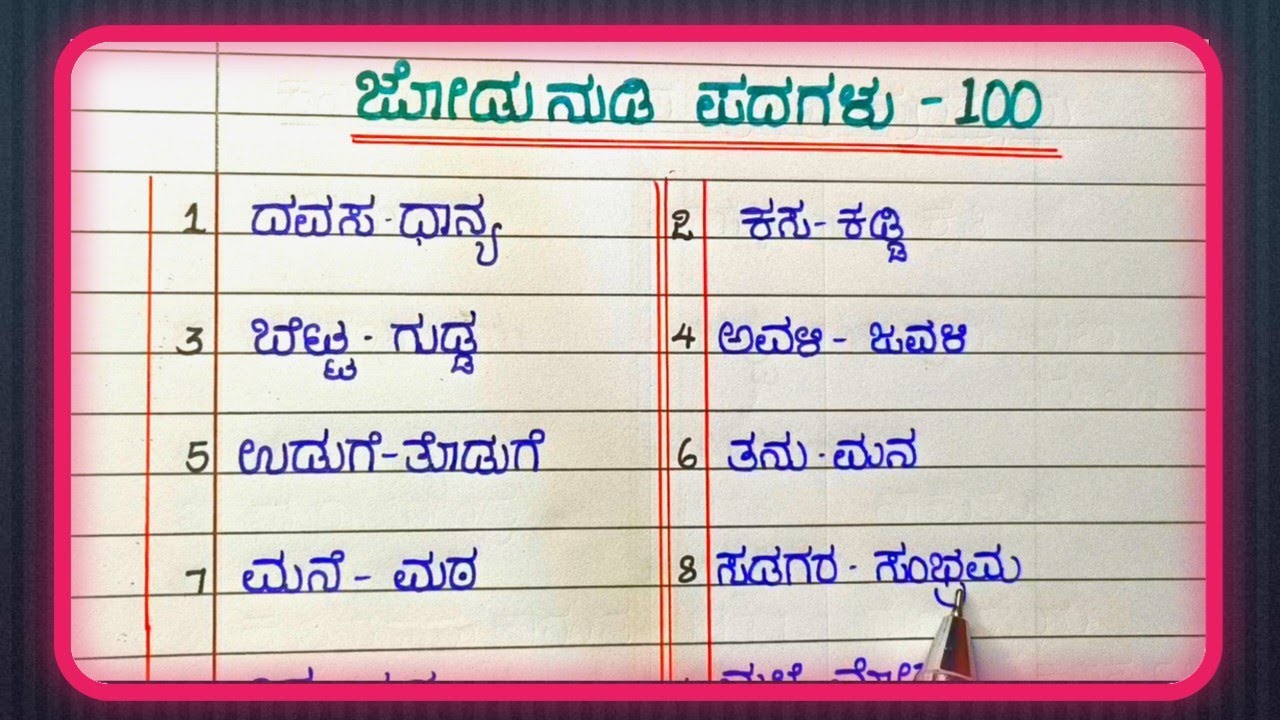 ಜೋಡುನುಡಿ ಪದಗಳು - 100
1 ದವಸ - ಧಾನ್ಯ 2 ಕಸ - ಕಡ್ಡಿ
3 ಬೆಟ್ಟ - ಗುಡ್ಡ 4 ಅವಳಿ - ಜವಳಿ
5 ಉಡುಗೆ - ತೊಡುಗೆ 6 ತನು - ಮನ
7 ಮನೆ - ಮಠ 8 ಸಡಗರ - ಸಂಭ್ರಮ